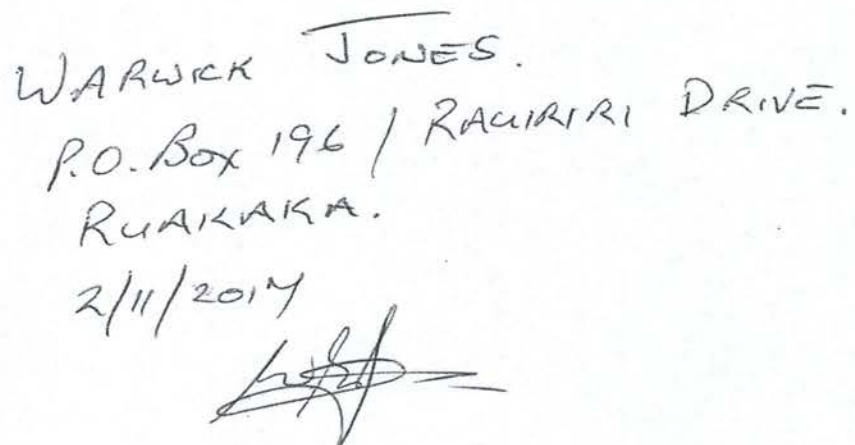 WARWICK JONES.
P.O. Box 196 / RAUIRIRI DRIVE.
RUAKAKA.
2/11/2017